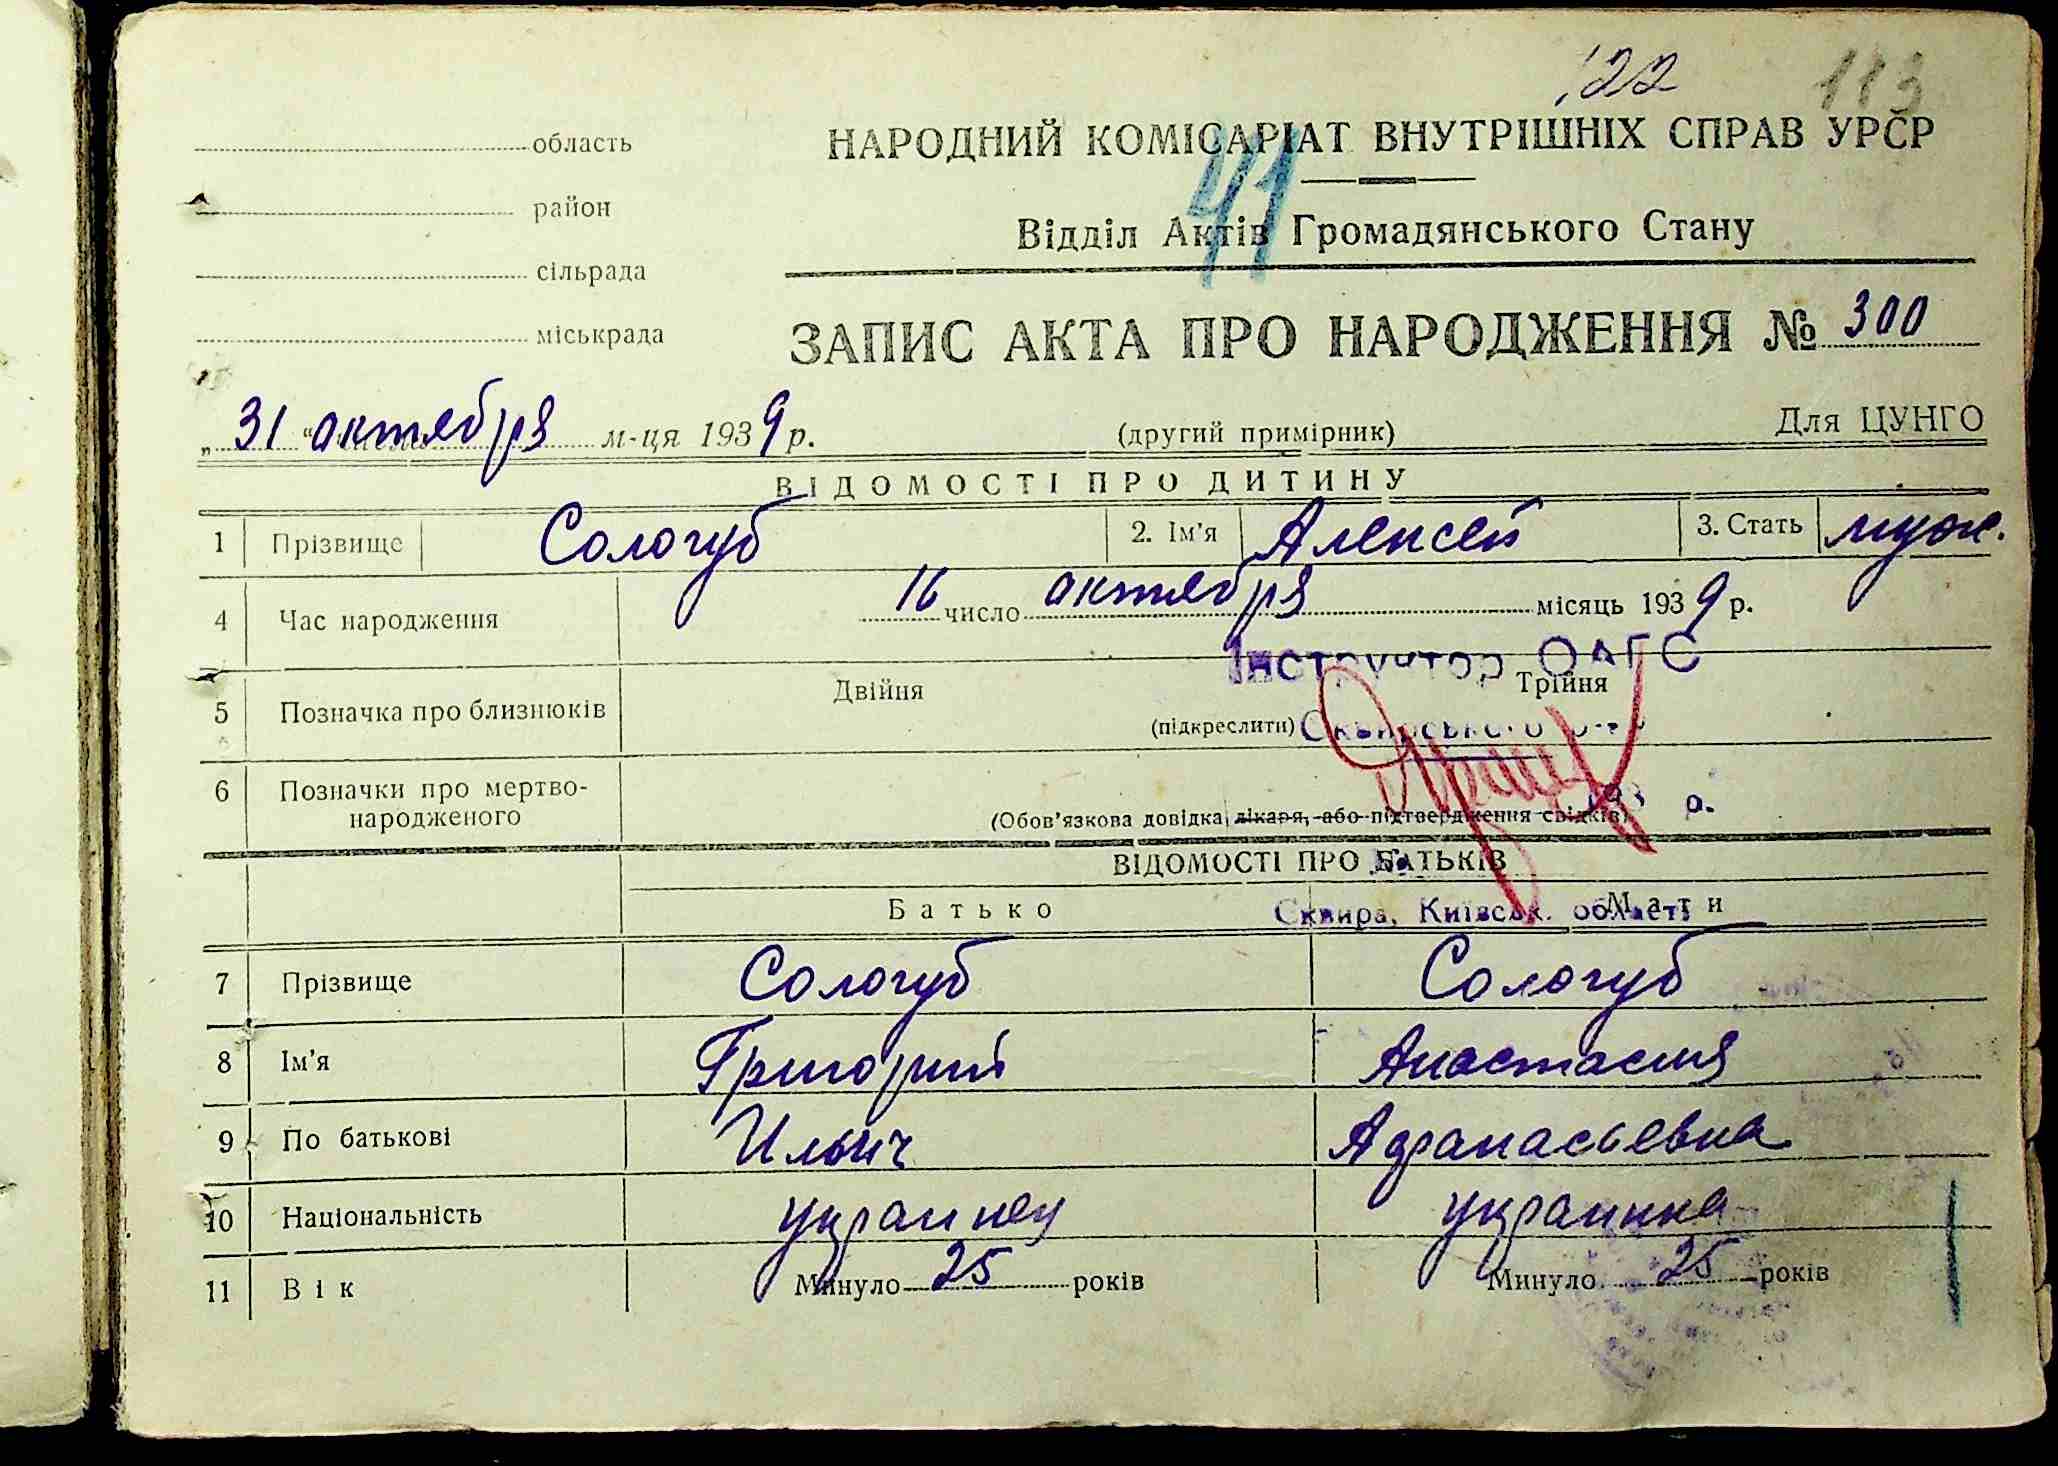 122 113
область
НАРОДНИЙ КОМІСАРІАТ ВНУТРІШНІХ СПРАВ УРСР
41
район
Відділ Актів Громадянського Стану
сільрада
міськрада
ЗАПИС АКТА ПРО НАРОДЖЕННЯ № 300
„31“ октября м-ця 1939 р. (другий примірник) Для ЦУНГО
ВІДОМОСТІ ПРО ДИТИНУ
1 Прізвище Сологуб 2. Ім'я Алексей 3. Стать муж.
4 Час народження 16 число октября місяць 1939 р.
Інструктор ОАГС
5 Позначка про близнюків Двійня (підкреслити) Трійня
6 Позначки про мертво-
народженого (Обов'язкова довідка лікаря, або підтвердження свідків)
193 р.
ВІДОМОСТІ ПРО БАТЬКІВ
Батько Мати
Сквира, Київськ. області
7 Прізвище Сологуб Сологуб
8 Ім'я Григорий Анастасия
9 По батькові Ильич Афанасьевна
10 Національність украинец украинка
11 Вік Минуло 25 років Минуло 25 років